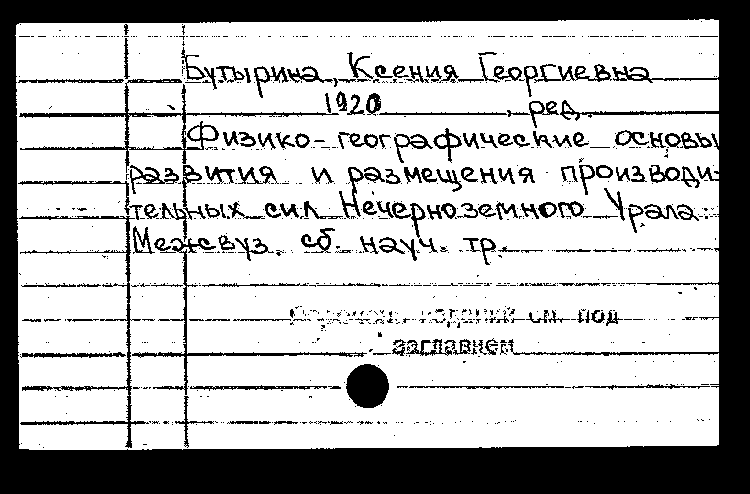 Бутырина, Ксения Георгиевна
1920 , ред.
Физико-географические основы
развития и размещения производи-
тельных сил Нечерноземного Урала:
Межвуз. сб. науч. тр.
Перечень изданий см. под
заглавием